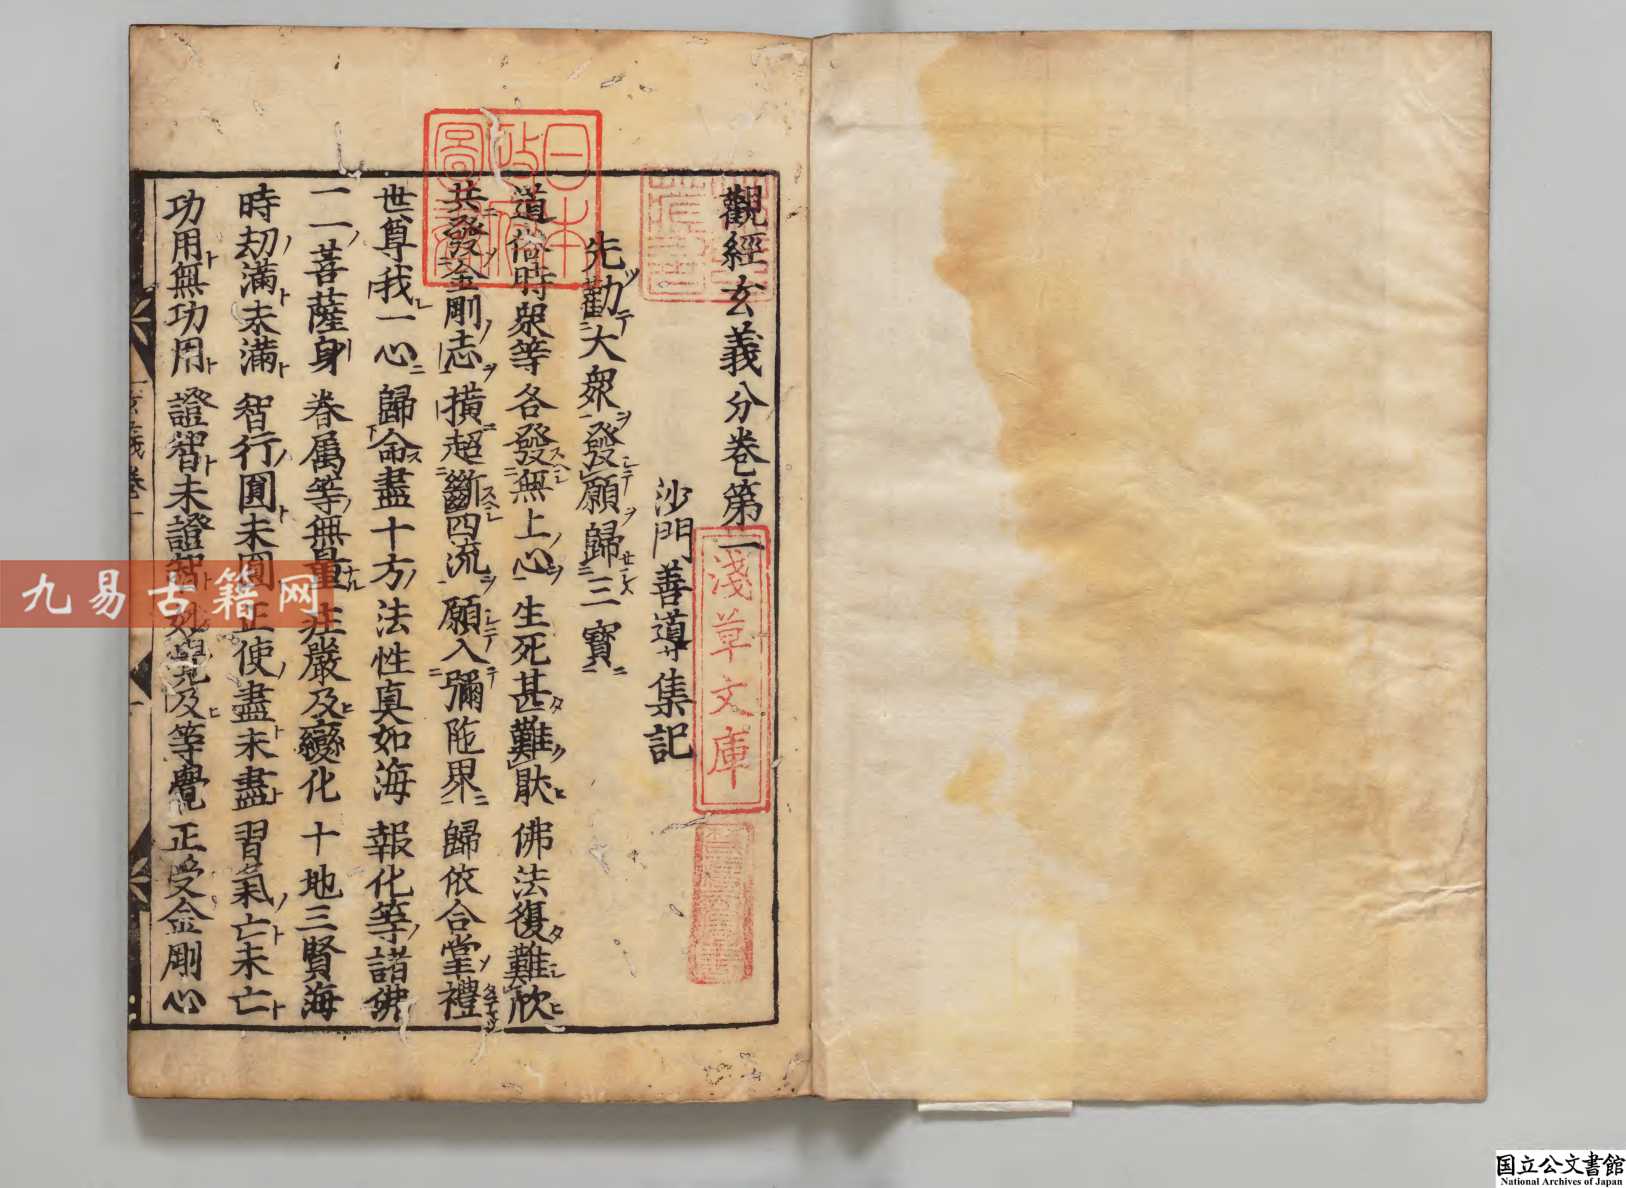 觀經玄義分卷第一
沙門善導集記
先勸大衆發願歸三寶
道俗時衆等 各發無上心 生死甚難猒 佛法復難欣
共發金剛志 橫超斷四流 願入彌陁界 歸依合掌禮
世尊我一心 歸命盡十方 法性真如海 報化等諸佛
一一菩薩身 眷属等無量 莊嚴及變化 十地三賢海
時劫滿未滿 智行圓未圓 正使盡未盡 習氣亡未亡
功用無功用 證智未證智 妙覺及等覺 正受金剛心
日本政府圖書
淺草文庫
九易古籍网
国立公文書館
National Archives of Japan